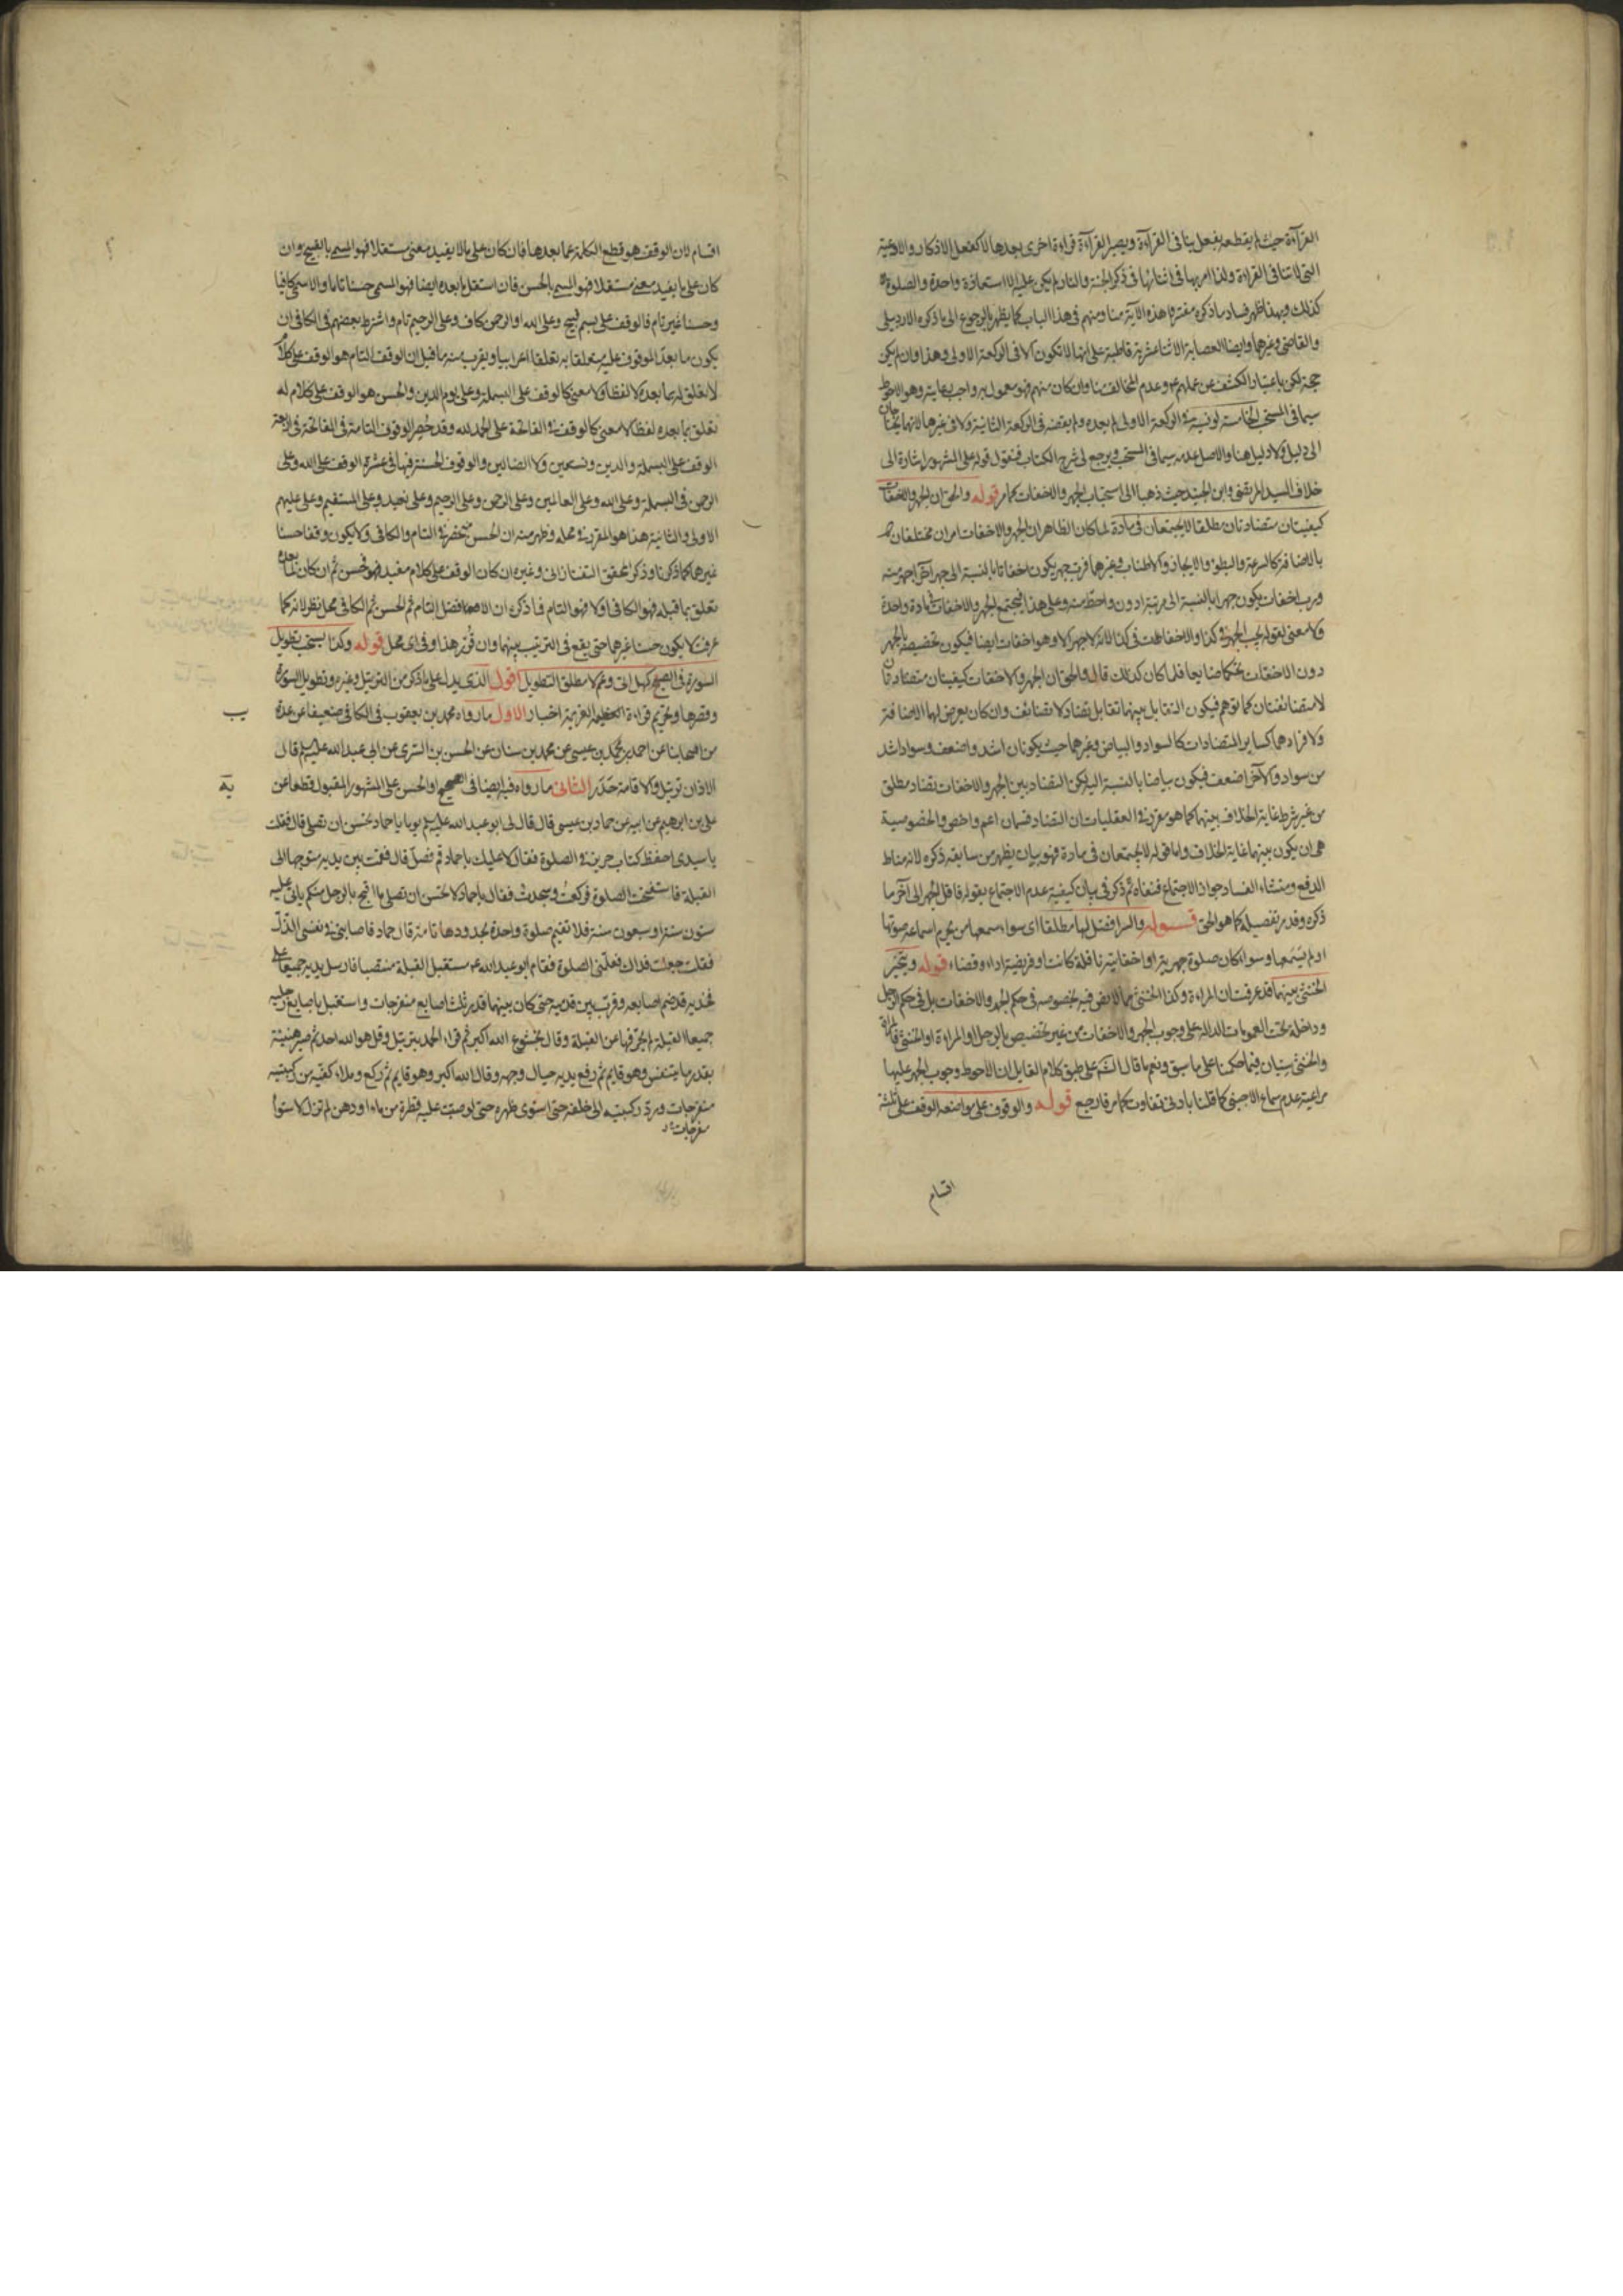 القرآءة حيث لم يقطعه بفعل ينافى القرآءة ويصير القرآءة قراءة اخرى بعدها لا كفعل الاذكار والادعية
التى لا تنافى القراءة ولذا امر بها فى اثنائها فى ذكر الجنة والنار لم يكن عليه الا استعاذة واحدة والصلوة
كذلك وبهذا ظهر فساد ما ذكره مفسروا هذه الآية منا ومنهم فى هذا الباب كما يظهر بالرجوع الى ما ذكره الاردبيلى
والقاضى وغيرهما وايضا العصابة الاثنا عشرية قاطبة على انها لا تكون الا فى الركعة الاولى وهذا وان لم يكن
حجة لكن باعتبار الكشف عن عملهم وعدم المخالف منا وان كان منهم فهو معمول به واجب رعايته وهو الاحوط
سيما فى المستحب الخامسة لو نسيه فى الركعة الاولى لم يعده ولم يقضه فى الركعة الثانية ولا فى غيرها لانهما يحتاجان
الى دليل ولا دليل هنا والاصل عدمه سيما فى المستحب ويرجع الى شرح الكتاب فنقول قوله على المشهور اشارة الى
خلاف السيد المرتضى وابن الجنيد حيث ذهبا الى استحباب الجهر والاخفات كما مر قوله والحق ان الجهر والاخفات
كيفيتان متضادتان مطلقا لا يجتمعان فى مادة لما كان الظاهر ان الجهر والاخفات امران مختلفان
بالاضافة كالسرعة والبطؤ والايجاز والاطناب وغيرهما فرب جهر يكون اخفاتا بالنسبة الى جهر آخر اجهر منه
ورب اخفات يكون جهرا بالنسبة الى مرتبة ادون واحط منه وعلى هذا فيجتمع الجهر والاخفات فى مادة واحدة
ولا معنى لقوله يجب الجهر فى كذا والاخفات فى كذا لانه لا جهر الا وهو اخفات ايضا فيكون تخصيصه بالجهر
دون الاخفات تحكما ضايعا فلما كان كذلك قال والحق ان الجهر والاخفات كيفيتان متضادتان
لا متضائفتان كما توهم فيكون التقابل بينهما تقابل تضاد لا تضايف وان كان يعرض لهما الاضافة
ولا فرادهما كساير المتضادات كالسواد والبياض وغيرهما حيث يكونان اشد واضعف وسواد اشد
من سواد والآخر اضعف فيكون بياضا بالنسبة اليه لكن التضاد بين الجهر والاخفات تضاد مطلق
من غير شرط غاية الخلاف بينهما كما هو مقرر فى العقليات ان التضاد قسمان اعم واخص والخصوصية
هى ان يكون بينهما غاية الخلاف واما قوله لا يجتمعان فى مادة فهو بيان يظهر من سابقه ذكره لانه مناط
الدفع ومنشاء الفساد جواز الاجتماع فنفاه ثم ذكر فى بيان كيفية عدم الاجتماع بقوله فاقل الجهر الى آخر ما
ذكره وقد مر تفصيله كما هو الحق قوله والسر افضل لها مطلقا اى سواء سمعها من يحرم اسماعه صوتها
او لم يسمعها وسواء كان صلوة جهرية او اخفاتية نافلة كانت او فريضة اداء وقضاء قوله ويتخير
الخنثى بينهما قد عرفت ان المراءة وكذا الخنثى مما لا نص فيه بخصوصه فى حكم الجهر والاخفات بل فى حكم الرجل
وداخلة تحت العمومات الدالة على وجوب الجهر والاخفات من غير تخصيص بالرجل او المراءة او الخنثى فالمراة
والخنثى سيّان فيما حكمنا على ما سبق ونعم ما قال الشم على طبق كلام القايل ان الاحوط وجوب الجهر عليها
مراعية عدم سماع الاجنبى كما قلنا بادنى تفاوت كما مر فارجع قوله والوقوف على مواضعه الوقف على ثلثة
اقسام
اقسام لان الوقف هو قطع الكلمة عما بعدها فان كان على ما لا يفيد معنى مستقلا فهو المسمى بالقبيح وان
كان على ما يفيد معنى مستقلا فهو المسمى بالحسن فان استقل ما بعده ايضا فهو المسمى حسنا تاما والا سمى كافيا
وحسنا غير تام فالوقف على بسم قبيح وعلى الله او الرحمن كاف وعلى الرحيم تام واشترط بعضهم فى الكافى ان
يكون ما بعد الموقوف عليه متعلقا به تعلقا اعرابيا ويقرب منه ما قيل ان الوقف التام هو الوقف على كلام
لا تعلق له بما بعده لا لفظا ولا معنى كالوقف على البسملة وعلى يوم الدين والحسن هو الوقف على كلام له
تعلق بما بعده لفظا لا معنى كالوقف فى الفاتحة على الحمد لله وقد حصر الوقوف التامة فى الفاتحة فى اربعة
الوقف على البسملة والدين ونستعين ولا الضالين والوقوف الحسنة فيها فى عشرة الوقف على الله وعلى
الرحمن فى البسملة وعلى الله وعلى العالمين وعلى الرحمن وعلى الرحيم وعلى نعبد وعلى المستقيم وعلى عليهم
الاولى والثانية هذا هو المقرر فى محله وظهر منه ان الحسن منحصر فى التام والكافى ولا يكون وقفا حسنا
غيرهما كما ذكرنا وذكر المحقق التفتازانى وغيره ان كان الوقف على كلام مفيد فهو حسن ثم ان كان لما بعده
تعلق بما قبله فهو الكافى اولا فهو التام فما ذكره ان الافضل التام ثم الحسن ثم الكافى محل نظر لانه كما
عرفت لا يكون حسنا غيرهما حتى يقع فى الترتيب بينهما وان قرر هذا وفى اى محل قوله وكذا يستحب تطويل
السورة فى الصبح كهل اتى وعم لا مطلق التطويل اقول الذى يدل على ما ذكر من الترتيل وغيره وتطويل السورة
وقصرها وتحريم قراءة العظيمة العزيمة اخبار الاول ما رواه محمد بن يعقوب فى الكافى ضعيفا عن عدة
يب
من اصحابنا عن احمد بن محمد بن عيسى عن محمد بن سنان عن الحسن بن السرى عن ابى عبد الله عليه السلم قال
الاذان ترتيل والاقامة حدر الثانى ما رواه فيه ايضا فى الصحيح او الحسن على المشهور المقبول قطعا عن
يه
على بن ابرهيم عن ابيه عن حماد بن عيسى قال قال لى ابو عبد الله عليه السلم يوما يا حماد تحسن ان تصلى قال فقلت
يا سيدى احفظ كتاب حريز فى الصلوة فقال لا عليك يا حماد قم فصل قال فقمت بين يديه متوجها الى
القبلة فاستفتحت الصلوة فركعت وسجدت فقال يا حماد لا تحسن ان تصلى ما اقبح بالرجل منكم ياتى عليه
ستون سنة او سبعون سنة فلا تقيم صلوة واحدة بحدودها تامة قال حماد فاصابنى فى نفسى الذل
فقلت جعلت فداك فعلمنى الصلوة فقام ابو عبد الله مستقبل القبلة منتصبا فارسل يديه جميعا على
فخذيه قد ضم اصابعه وقرب بين قدميه حتى كان بينهما قدر ثلث اصابع منفرجات واستقبل باصابع رجليه
جميعا القبلة لم يحرفها عن القبلة وقال بخشوع الله اكبر ثم قراء الحمد بترتيل وقل هو الله احد ثم صبر هنيئة
بقدر ما يتنفس وهو قايم ثم رفع يديه حيال وجهه وقال الله اكبر وهو قايم ثم ركع وملاء كفيه من ركبتيه
منفرجات ورد ركبتيه الى خلفه حتى استوى ظهره حتى لو صبت عليه قطرة من ماء او دهن لم تزل لاستواء